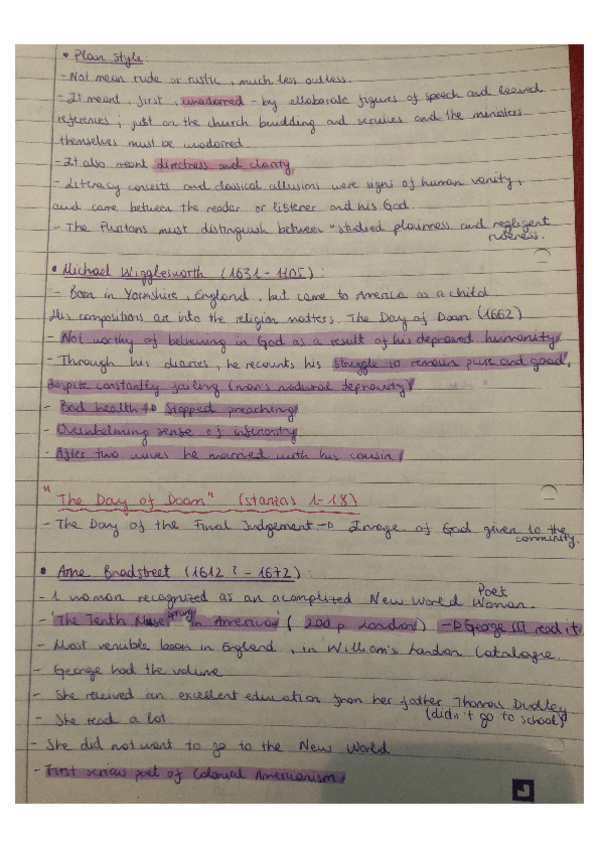 • Plan style
- Not mean rude or rustic, much less outless.
- It meant, first, unadorned - by ellaborate figures of speech and learned
references; just on the church building and services and the ministers
themselves must be unadorned
- It also meant directness and clarity,
- Literacy conceits and classical allusions were signs of human vanity,
and came between the reader or listener and his God.
- The Puritans must distinguish between "studied plainness and negligent
rudeness.
• Michael Wigglesworth (1631-1705):
- Born in Yorkshire, England, but came to America as a child
His compositions are into the religion matters, The Day of Doom (1662)
- Not worthy of believing in God as a result of his depraved humanity
- Through his diaries, he recounts his struggle to remain pure and good,
despite constantly failing (man's natural depravity)
- Bad health → Stopped preaching
- Overwhelming sense of inferiority
- After two wives he married with his cousin
"The Day of Doom" (stanzas 1-18)
- The Day of the Final Judgement → Image of God given to the
community.
• Anne Bradstreet (1612? - 1672):
- 1 woman recognized as an acomplized New World Poet Woman.
- 'The Tenth Muse sprung in America' (200 p London) → George III read it
- Most venible book in England, in William's London Catalogue
- George had the volume
- She recived an excellent education from her father Thomas Dudley
(didn't go to school)
- She read a lot
- She did not want to go to the New World
- First serious poet of Colonial Americanism